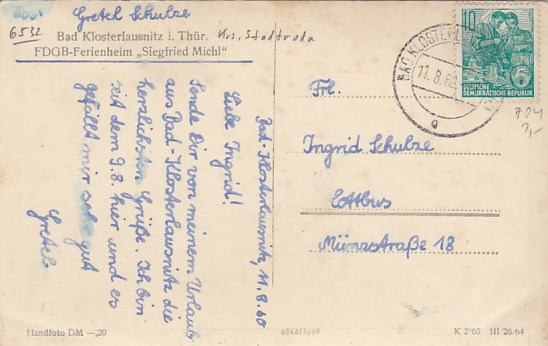 Gretel Schulze
6532
Bad Klosterlausnitz i. Thür. Krs. Stadtroda
FDGB-Ferienheim „Siegfried Michl"
Bad-Klosterlausnitz, 11.8.60
Liebe Ingrid!
Sende Dir von meinem Urlaub
aus Bad-Klosterlausnitz die
herzlichsten Grüße. Ich bin
seit dem 9.8. hier und es
gefällt mir sehr gut
Gretel
10
DEUTSCHE
DEMOKRATISCHE REPUBLIK
BAD KLOSTERL
11.8.60
a
704
3,-
Frl.
Ingrid Schulze
Cottbus
Münzstraße 18
Handfoto DM —,20
K 2/60 III/26/64